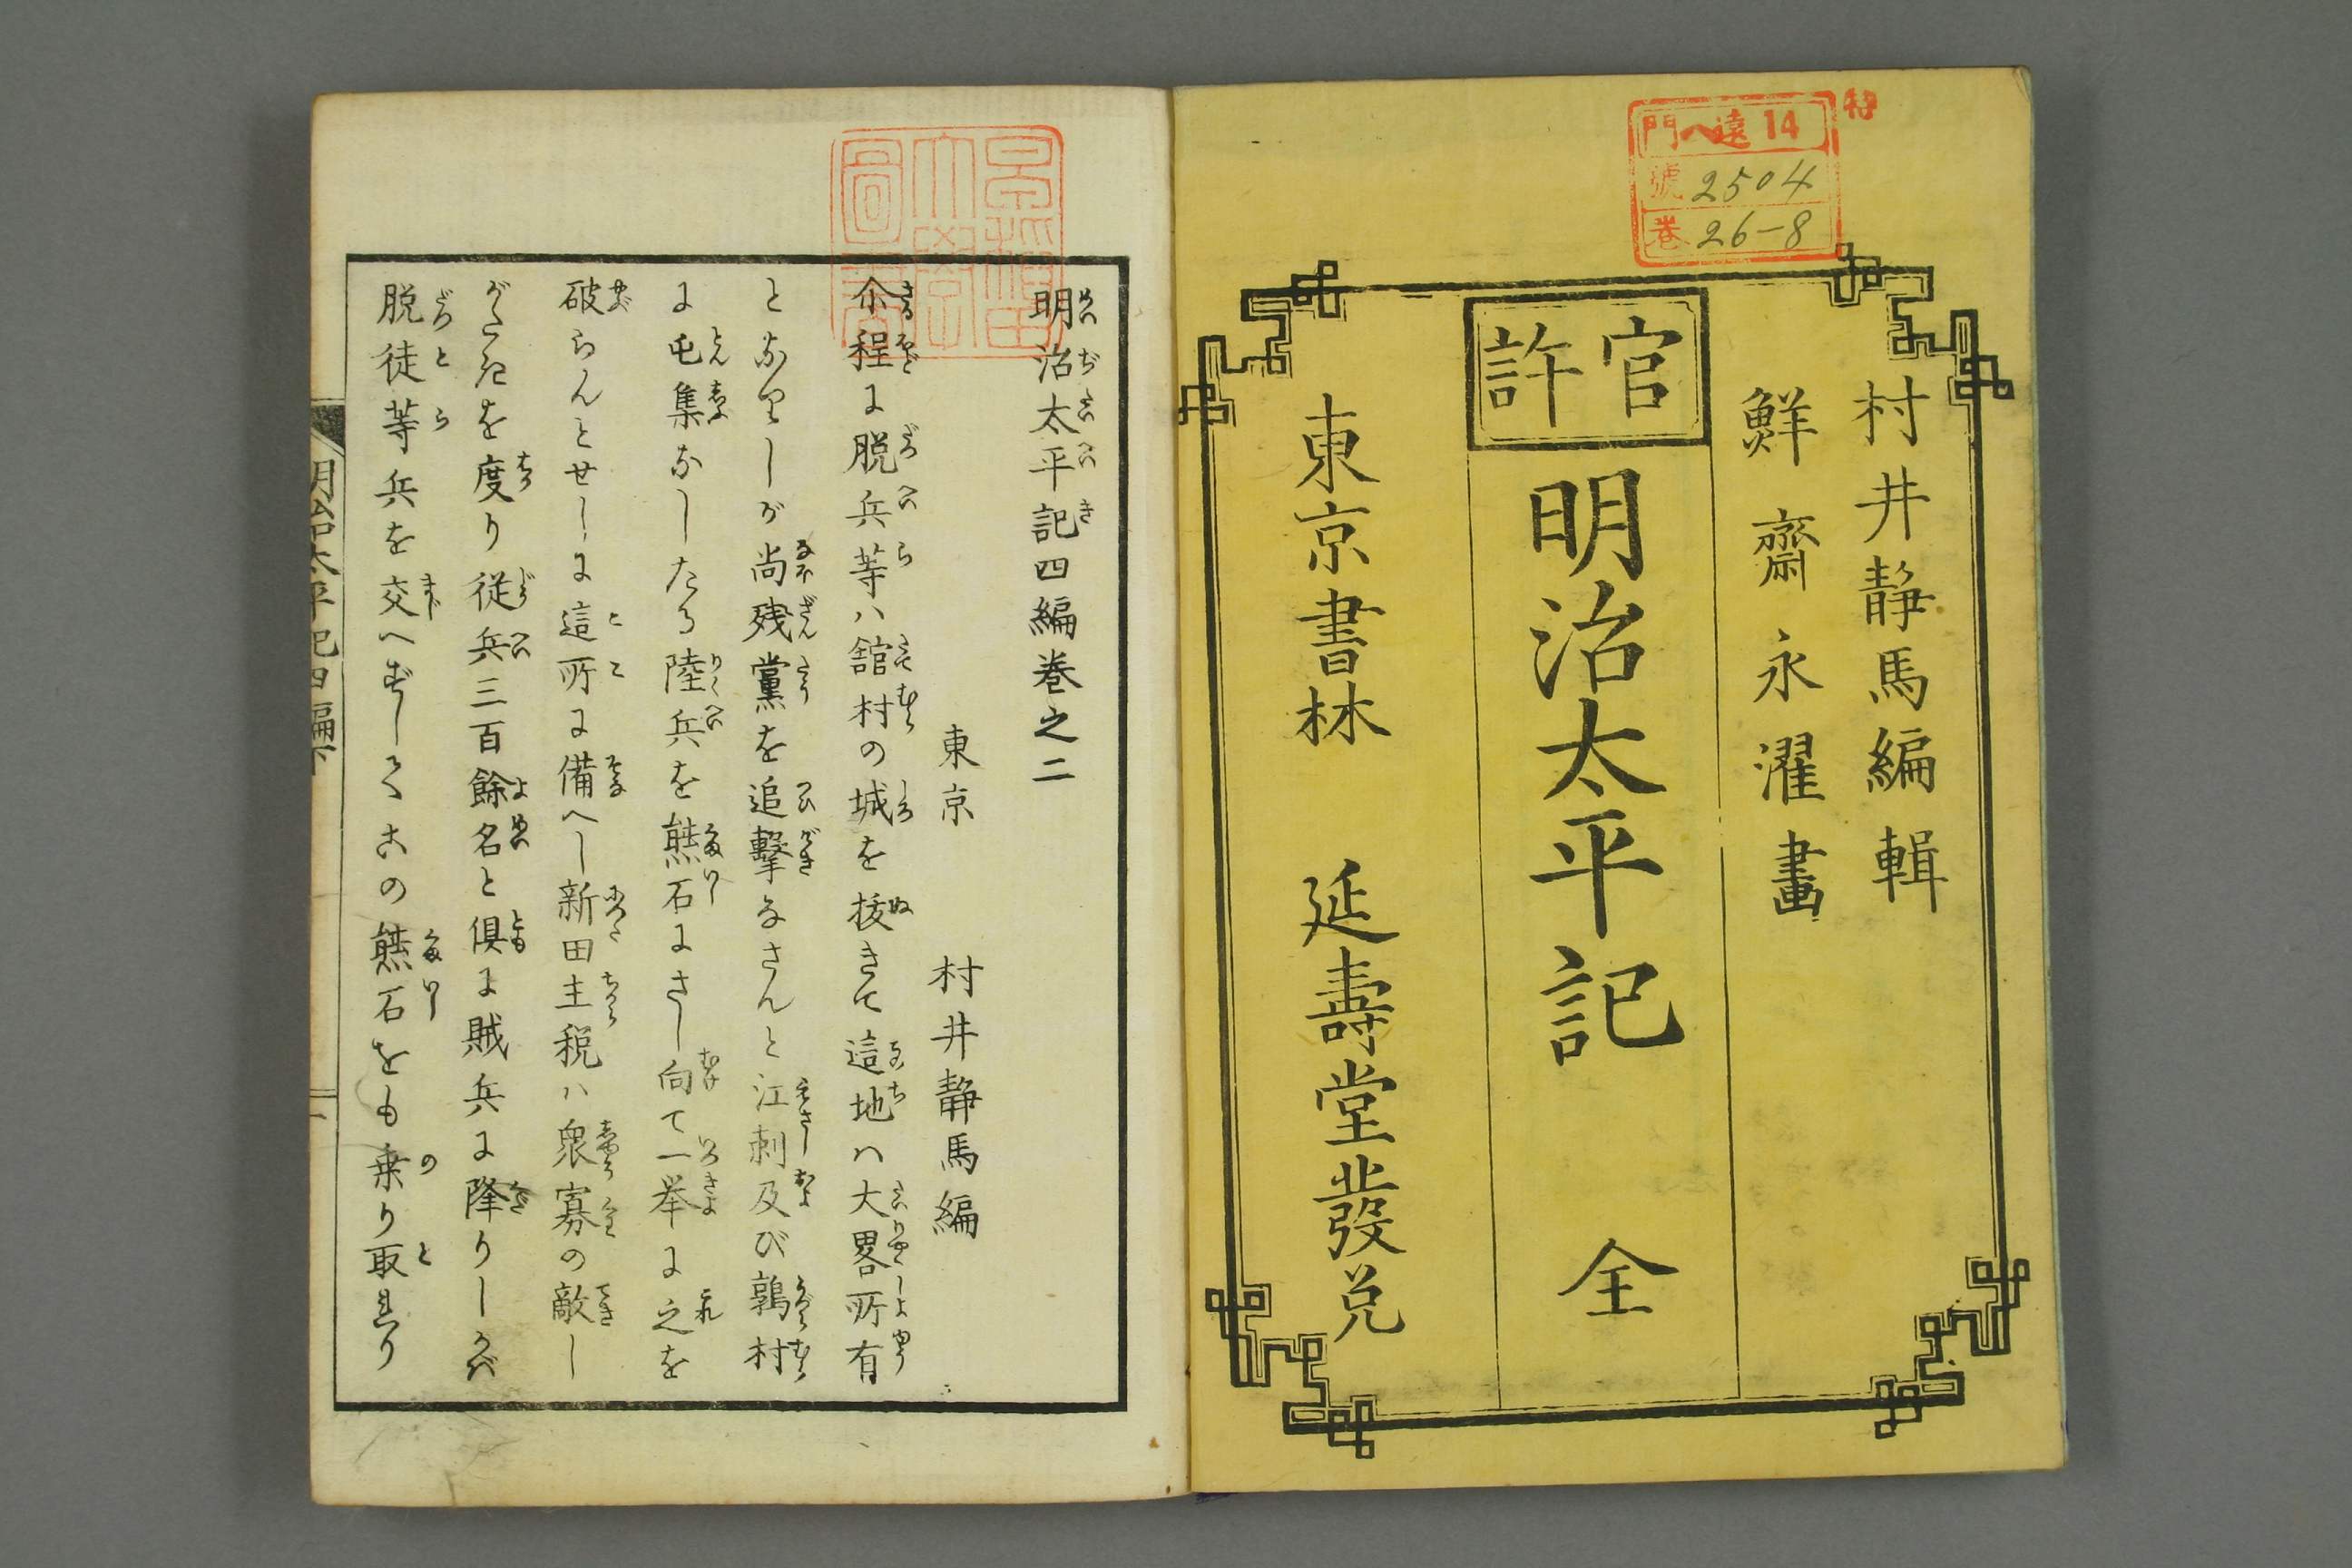 特
門 ヘ遠 14
號 2504
巻 26-8
村井静馬編輯
鮮齋永濯畫
官許
明治太平記 全
東京書林 延壽堂發兌
明治太平記四編巻之二
東京 村井静馬編
尒程に脱兵等ハ舘村の城を抜きて這地ハ大畧所有
となりしが尚残黨を追撃なさんと江刺及び鶉村
に屯集なしたる陸兵を熊石にさし向て一挙に之を
破らんとせしに這所に備へし新田主税ハ衆寡の敵し
がたきを度り従兵三百餘名と倶に賊兵に降りしかば
脱徒等兵を交へずしてこの熊石をも乗り取れり
明治太平記四編下